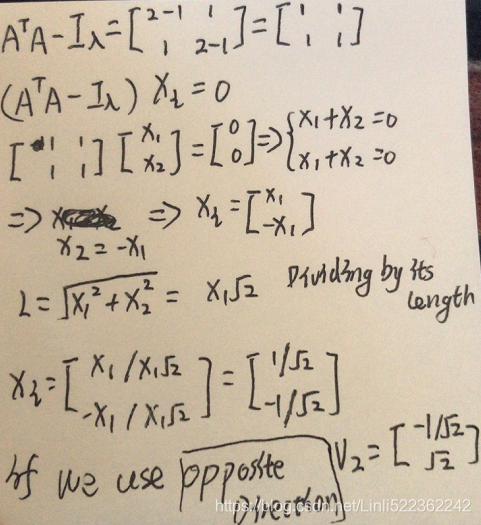 AᵀA-Iλ=[2-1 1; 1 2-1]=[1 1; 1 1]
(AᵀA-Iλ) X₂=0
[1 1; 1 1] [x₁; x₂]=[0; 0]=>{x₁+x₂=0; x₁+x₂=0
=> => X₂=[x₁; -x₁]
x₂=-x₁
L=√(x₁²+x₂²)= x₁√2 Dividing by its
length
X₂=[x₁/x₁√2; -x₁/x₁√2]=[1/√2; -1/√2]
If we use opposite V₂=[-1/√2; √2]
direction
https://blog.csdn.net/Linli522362242